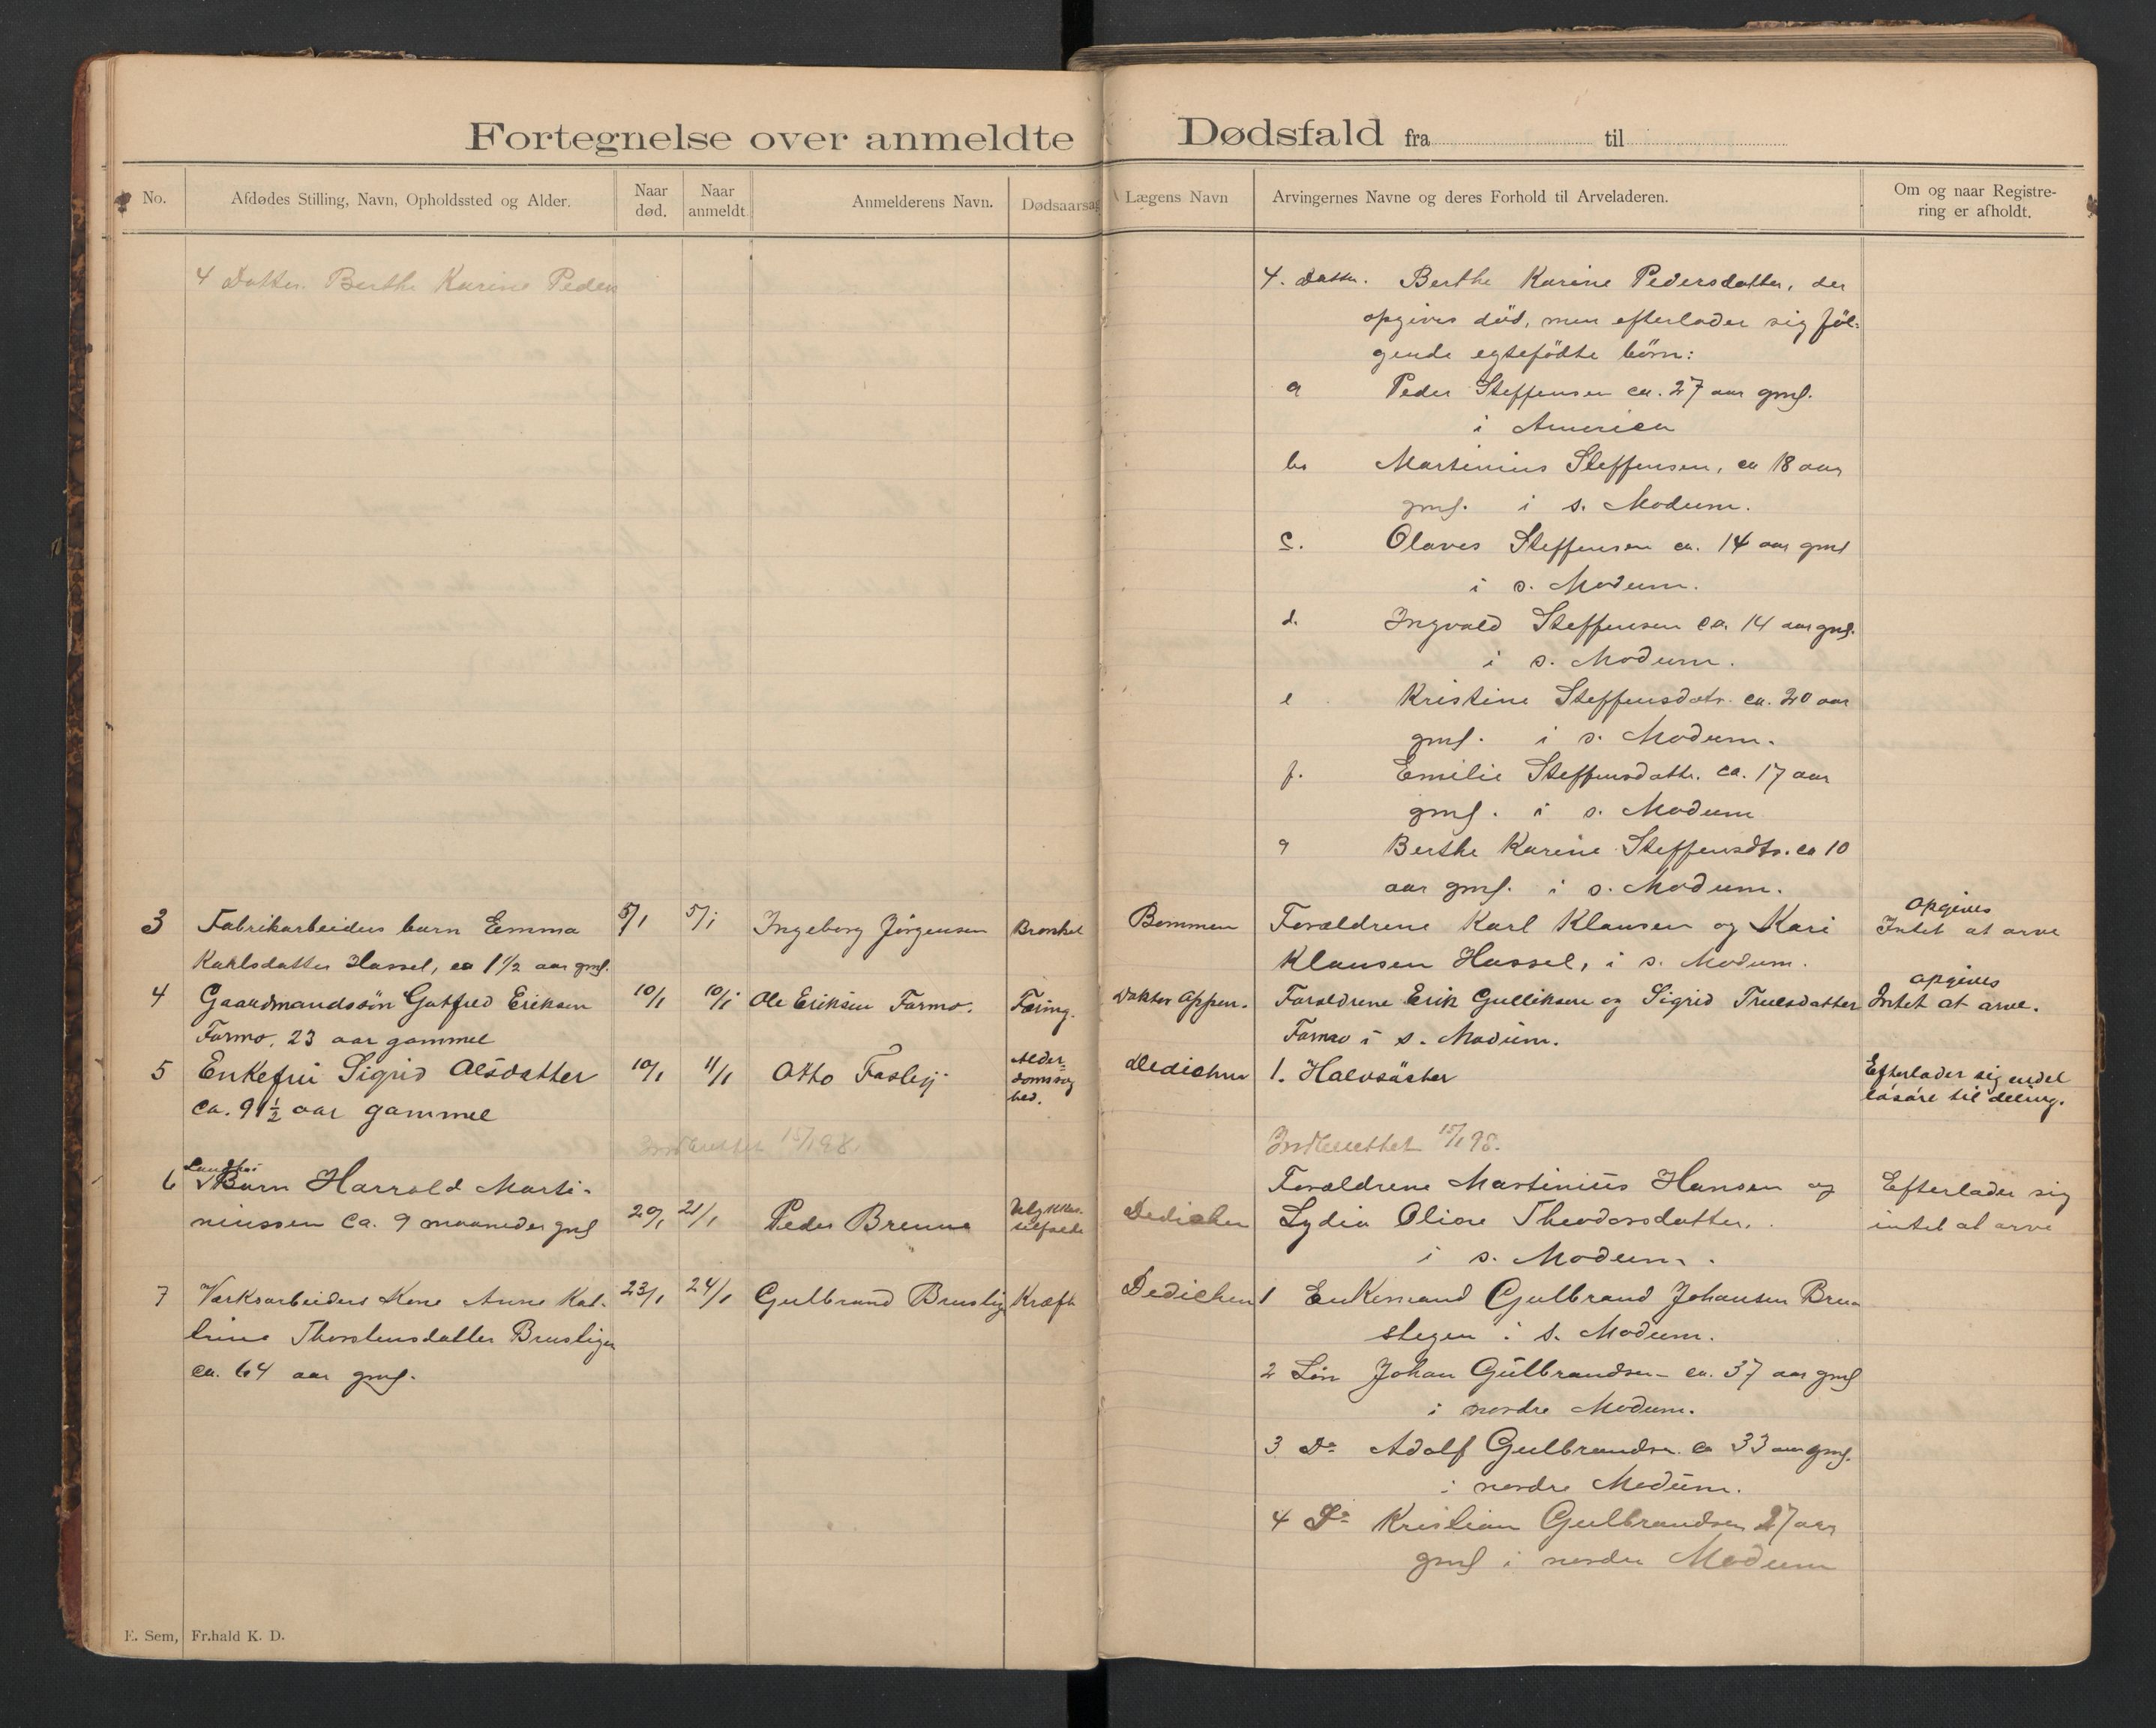 Fortegnelse over anmeldte Dødsfald fra til
No.
Afdødes Stilling, Navn, Opholdssted og Alder.
Naar død.
Naar anmeldt.
Anmelderens Navn.
Dødsaarsag
Lægens Navn
Arvingernes Navne og deres Forhold til Arveladeren.
Om og naar Registre-
ring er afholdt.
4 Datter. Berthe Karine Peders
4. Datter. Berthe Karine Pedersdatter, der
opgives död, men efterlader sig föl-
gende egtefödte börn:
a Peder Steffensen ca. 27 aar gml.
i America
b. Martinius Steffensen, ca 18 aar
gml. i s. Modum.
c. Olaves Steffensen ca. 14 aar gml
i s. Modum.
d. Ingvald Steffensen ca 14 aar gml.
i s. Modum.
e Kristine Steffensdatr. ca. 20 aar
gml. i s. Modum.
f. Emilie Steffensdattr. ca. 17 aar
gml. i s. Modum
g Berthe Karine Steffensdtr. ca 10
aar gml. i s. Modum.
3 Fabrikarbeiders barn Emma 5/1 5/1 Ingeborg Jörgensen Bronkel Bommen Forældrene Karl Klausen og Kari opgives Intet at arve
Kahlsdatter Hassel, ca 1 1/2 aar gml. Klausen Hassel, i s. Modum.
4 Gaardmandssön Gutfred Eriksen 10/1 10/1 Ole Eriksen Farmo. Tæring. Doktor Appen. Forældrene Erik Gulliksen og Sigrid Truelsdatter opgives Intet at arve.
Farmo. 23 aar gammel Farmo i s. Modum.
5 Enkefru Sigrid Olsdatter 10/1 11/1 Otto Alder-
domssvag
hed. Dedichen 1. Halvsöster Efterlader sig endel
ca. 91 1/2 aar gammel lösöre til deling.
Indberettet 15/1 98.
Indberettet 15/1 98.
6 Barn Harrald Marti- Forældrene Martinius Hansen og Efterlader sig
niussen ca. 9 maaneder gml 20/1 21/1 Peder Brenna Dedichen Lydia Oline Theodorsdatter. intet at arve
i s. Modum.
7 Værksarbeiders Kone Anne Kat- 23/1 24/1 Gulbrand Brustig Kræft Dedichen 1 Enkemand Gulbrand Johansen Bru
rine Thorstensdatter Brustigen stegen i s. Modum.
ca. 64 aar gml. 2 Sön Johan Gulbrandsen ca. 37 aar gml
i nordre Modum.
3 Do Adolf Gulbrandsen ca 33 aar gml.
i nordre Modum.
4 Do Kristian Gulbrandsen 27 aar
gml i nordre Modum
E. Sem, Fr.hald K. D.